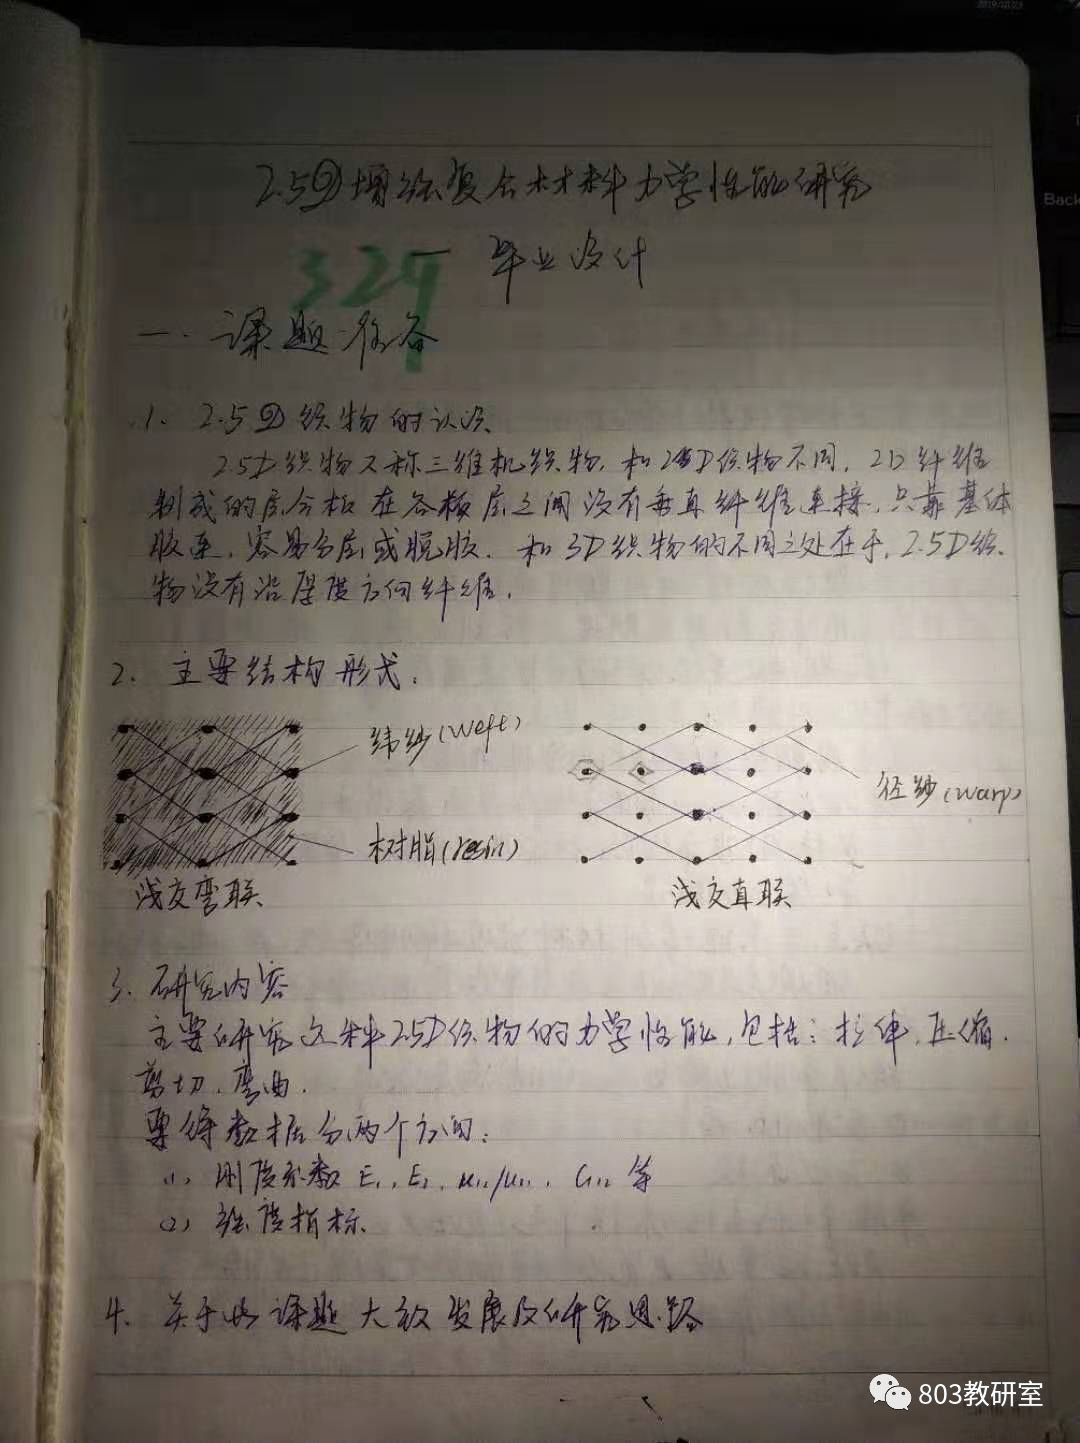 2.5D增强复合材料力学性能研究
329
— 毕业设计
一. 课题准备
1. 2.5D织物的认识
2.5D织物又称三维机织物, 和2D织物不同, 2D纤维
制成的层合板在各板层之间没有垂直纤维连接, 只靠基体
胶连, 容易分层或脱胶. 和3D织物的不同之处在于, 2.5D织
物没有沿厚度方向纤维.
2. 主要结构形式.
纬纱(weft)
径纱(warp)
树脂(resin)
浅交弯联
浅交直联
3. 研究内容
主要研究这种2.5D织物的力学性能, 包括: 拉伸, 压缩.
剪切. 弯曲.
要得数据分两个方向:
(1) 刚度系数 E₁, E₂, μ₁₂/μ₂₁, G₁₂ 等
(2) 强度指标
4. 关于此课题大致发展及研究思路
803教研室
Back